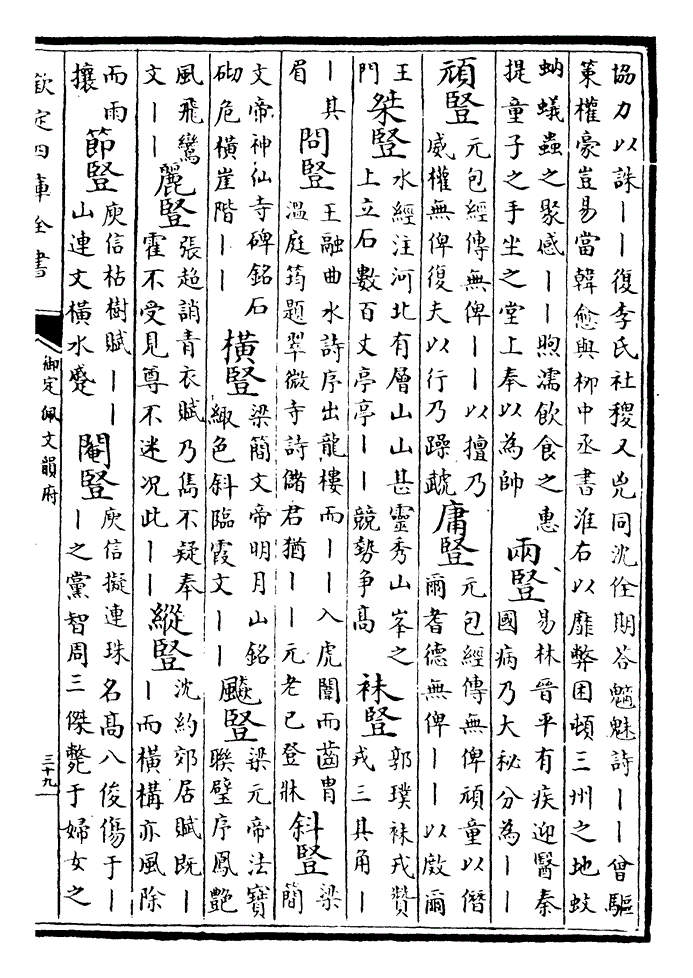 協力以誅丨丨復李氏社稷又兇同沈佺期荅魑魅詩丨丨曾驅
策權豪豈易當韓愈與栁中丞書淮右以靡弊困頓三州之地蚊
蚋蟻蟲之聚感丨丨煦濡飲食之惠
提童子之手坐之堂上奉以為帥
兩豎
易林晉平有疾迎醫秦
國病乃大秘分為丨丨
頑豎
元包經傳無俾丨丨以擅乃
威權無俾復夫以行乃躁虣
庸豎
元包經傳無俾頑童以僭
爾耆德無俾丨丨以啟爾
王
門
桀豎
水經注河北有層山山甚靈秀山峯之
上立石數百丈亭亭丨丨競勢争髙
袜豎
郭璞袜戎贊
戎三其角丨
丨其
眉
問豎
王融曲水詩序出龍樓而丨丨入虎闈而齒胄
溫庭筠題翠微寺詩儲君猶丨丨元老已登牀
斜豎
梁
簡
文帝神仙寺碑銘石
砌危橫崖階丨丨
橫豎
梁簡文帝明月山銘
緅色斜臨霞文丨丨
飈豎
梁元帝法寶
聯璧序鳳艷
風飛鸞
文丨丨
麗豎
張超誚青衣賦乃雋不疑奉
霍不受見尊不迷况此丨丨
縱豎
沈約郊居賦既丨
丨而橫構亦風除
而雨
攘
節豎
庾信枯樹賦丨丨
山連文橫水蹙
閹豎
庾信擬連珠名髙八俊傷于丨
丨之黨智周三傑斃于婦女之
欽定四庫全書
御定佩文韻府
三十九